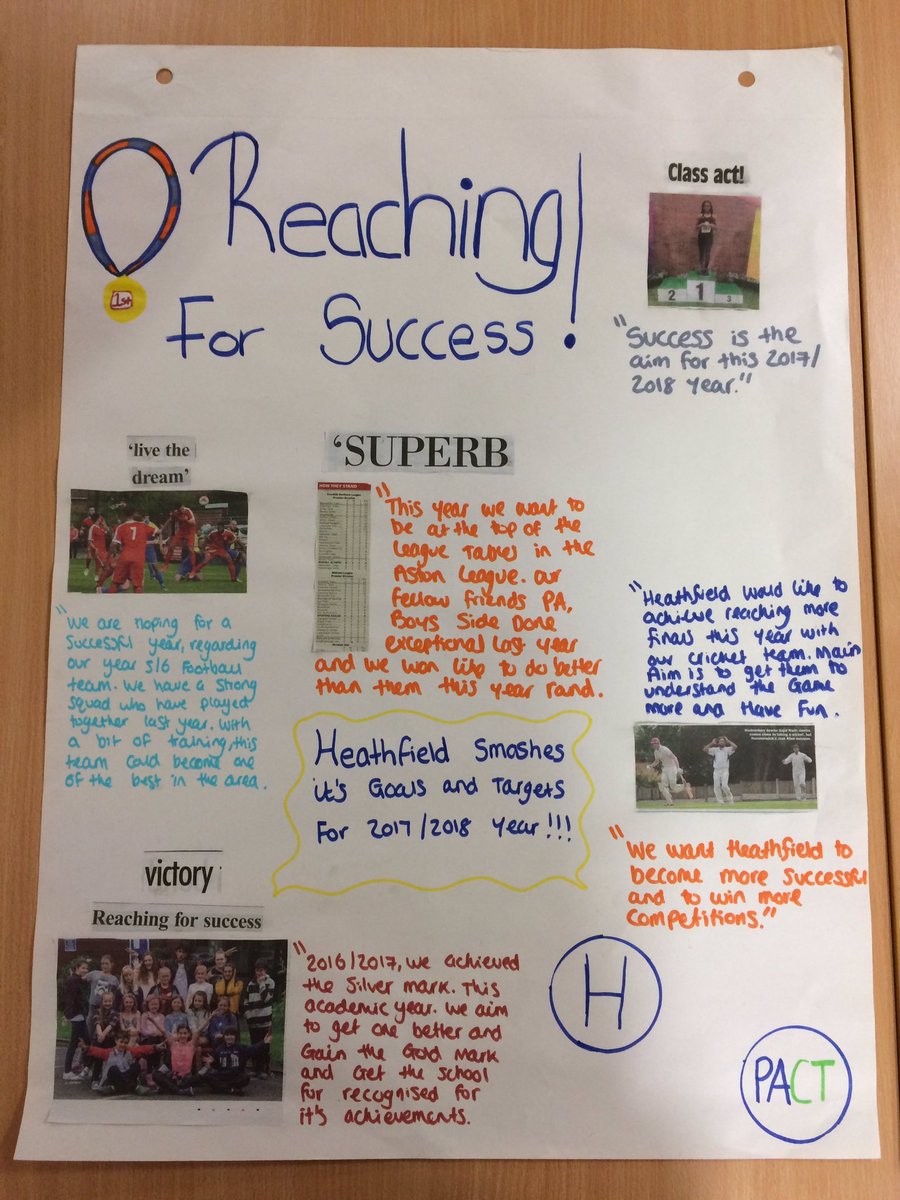 Reaching!
For Success!
1st
Class act!
2 1 3
"Success is the
aim for this 2017/
2018 year."
'live the
dream'
7
"We are hoping for a
successful year, regarding
our year 5/6 Football
team. We have a strong
squad who have played
together last year. With
a bit of training, this
team could become one
of the best in the area.
'SUPERB
HOW THEY STAND
"This year we want to
be at the top of the
League Tables in the
Aston League. Our
fellow friends PA,
Boys Side Done
exceptional last year
and we won like to do better
than them this year rand.
"Heathfield would like to
achieve reaching more
finals this year with
our cricket team. Main
Aim is to get them to
understand the Game
more and Have Fun.
Heathfield Smashes
it's Goals and Targets
For 2017/2018 year!!!
"We want Heathfield to
become more successful
and to win more
competitions."
victory
Reaching for success
"2016/2017, we achieved
the Silver mark. This
academic year. We aim
to get one better and
Gain the Gold Mark
and Get the school
fur recognised for
it's achievements.
H
PACT